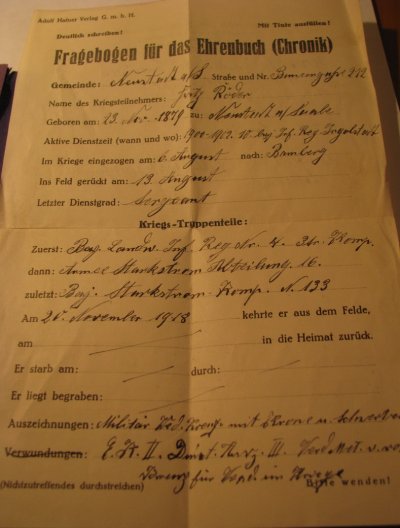 Adolf Hafner Verlag G. m. b. H.
Deutlich schreiben! Mit Tinte ausfüllen!
Fragebogen für das Ehrenbuch (Chronik)
Gemeinde: Neustadt a/S. Straße und Nr.
Name des Kriegsteilnehmers: Fritz Röder
Geboren am 23. Nov. 1879 zu: Neustadt a/Saale
Aktive Dienstzeit (wann und wo): 1900-1902. 10 bay. Inf. Reg. Ingolstadt
Im Kriege eingezogen am: 6. August nach: Bamberg
Ins Feld gerückt am: 13. August
Letzter Dienstgrad: Sergeant
Kriegs-Truppenteile:
Zuerst: Bay. Landw. Inf. Reg. Nr. 4. Komp.
dann: Armee Starkstrom Abteilung 16.
zuletzt: Bay. Starkstrom-Komp. N. 133
Am 20. November 1918 kehrte er aus dem Felde,
am in die Heimat zurück.
Er starb am: durch:
Er liegt begraben:
Auszeichnungen: Militär mit Krone u. Schwerter
Verwundungen: E. K. II. III.
für im Kriege
(Nichtzutreffendes durchstreichen) Bitte wenden!